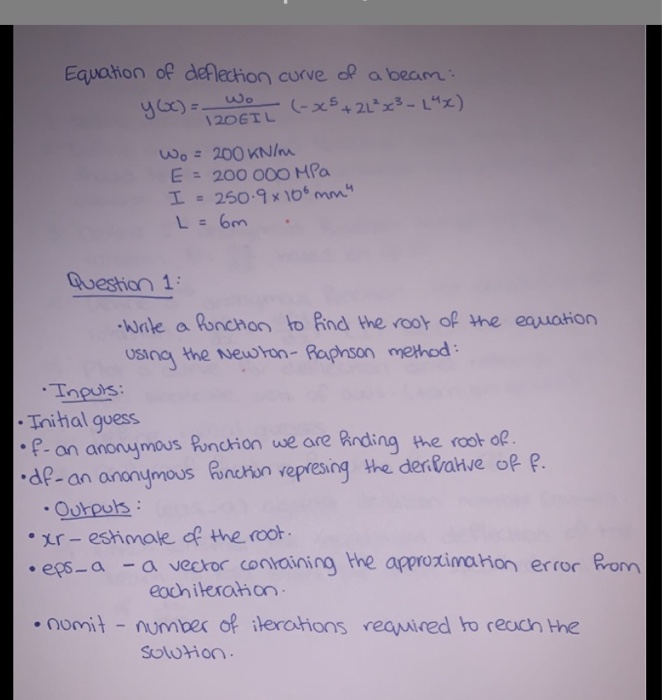 Equation of deflection curve of a beam:
y(x) = w₀ / 120EIL (-x⁵ + 2L²x³ - L⁴x)
w₀ = 200 KN/m
E = 200 000 MPa
I = 250.9 × 10⁶ mm⁴
L = 6m
Question 1:
• Write a function to find the root of the equation
using the Newton-Raphson method:
• Inputs:
• Initial guess
• f - an anonymous function we are finding the root of.
• df - an anonymous function represing the derivative of f.
• Outputs:
• xr - estimate of the root.
• eps_a - a vector containing the approximation error from
each iteration.
• numit - number of iterations required to reach the
solution.